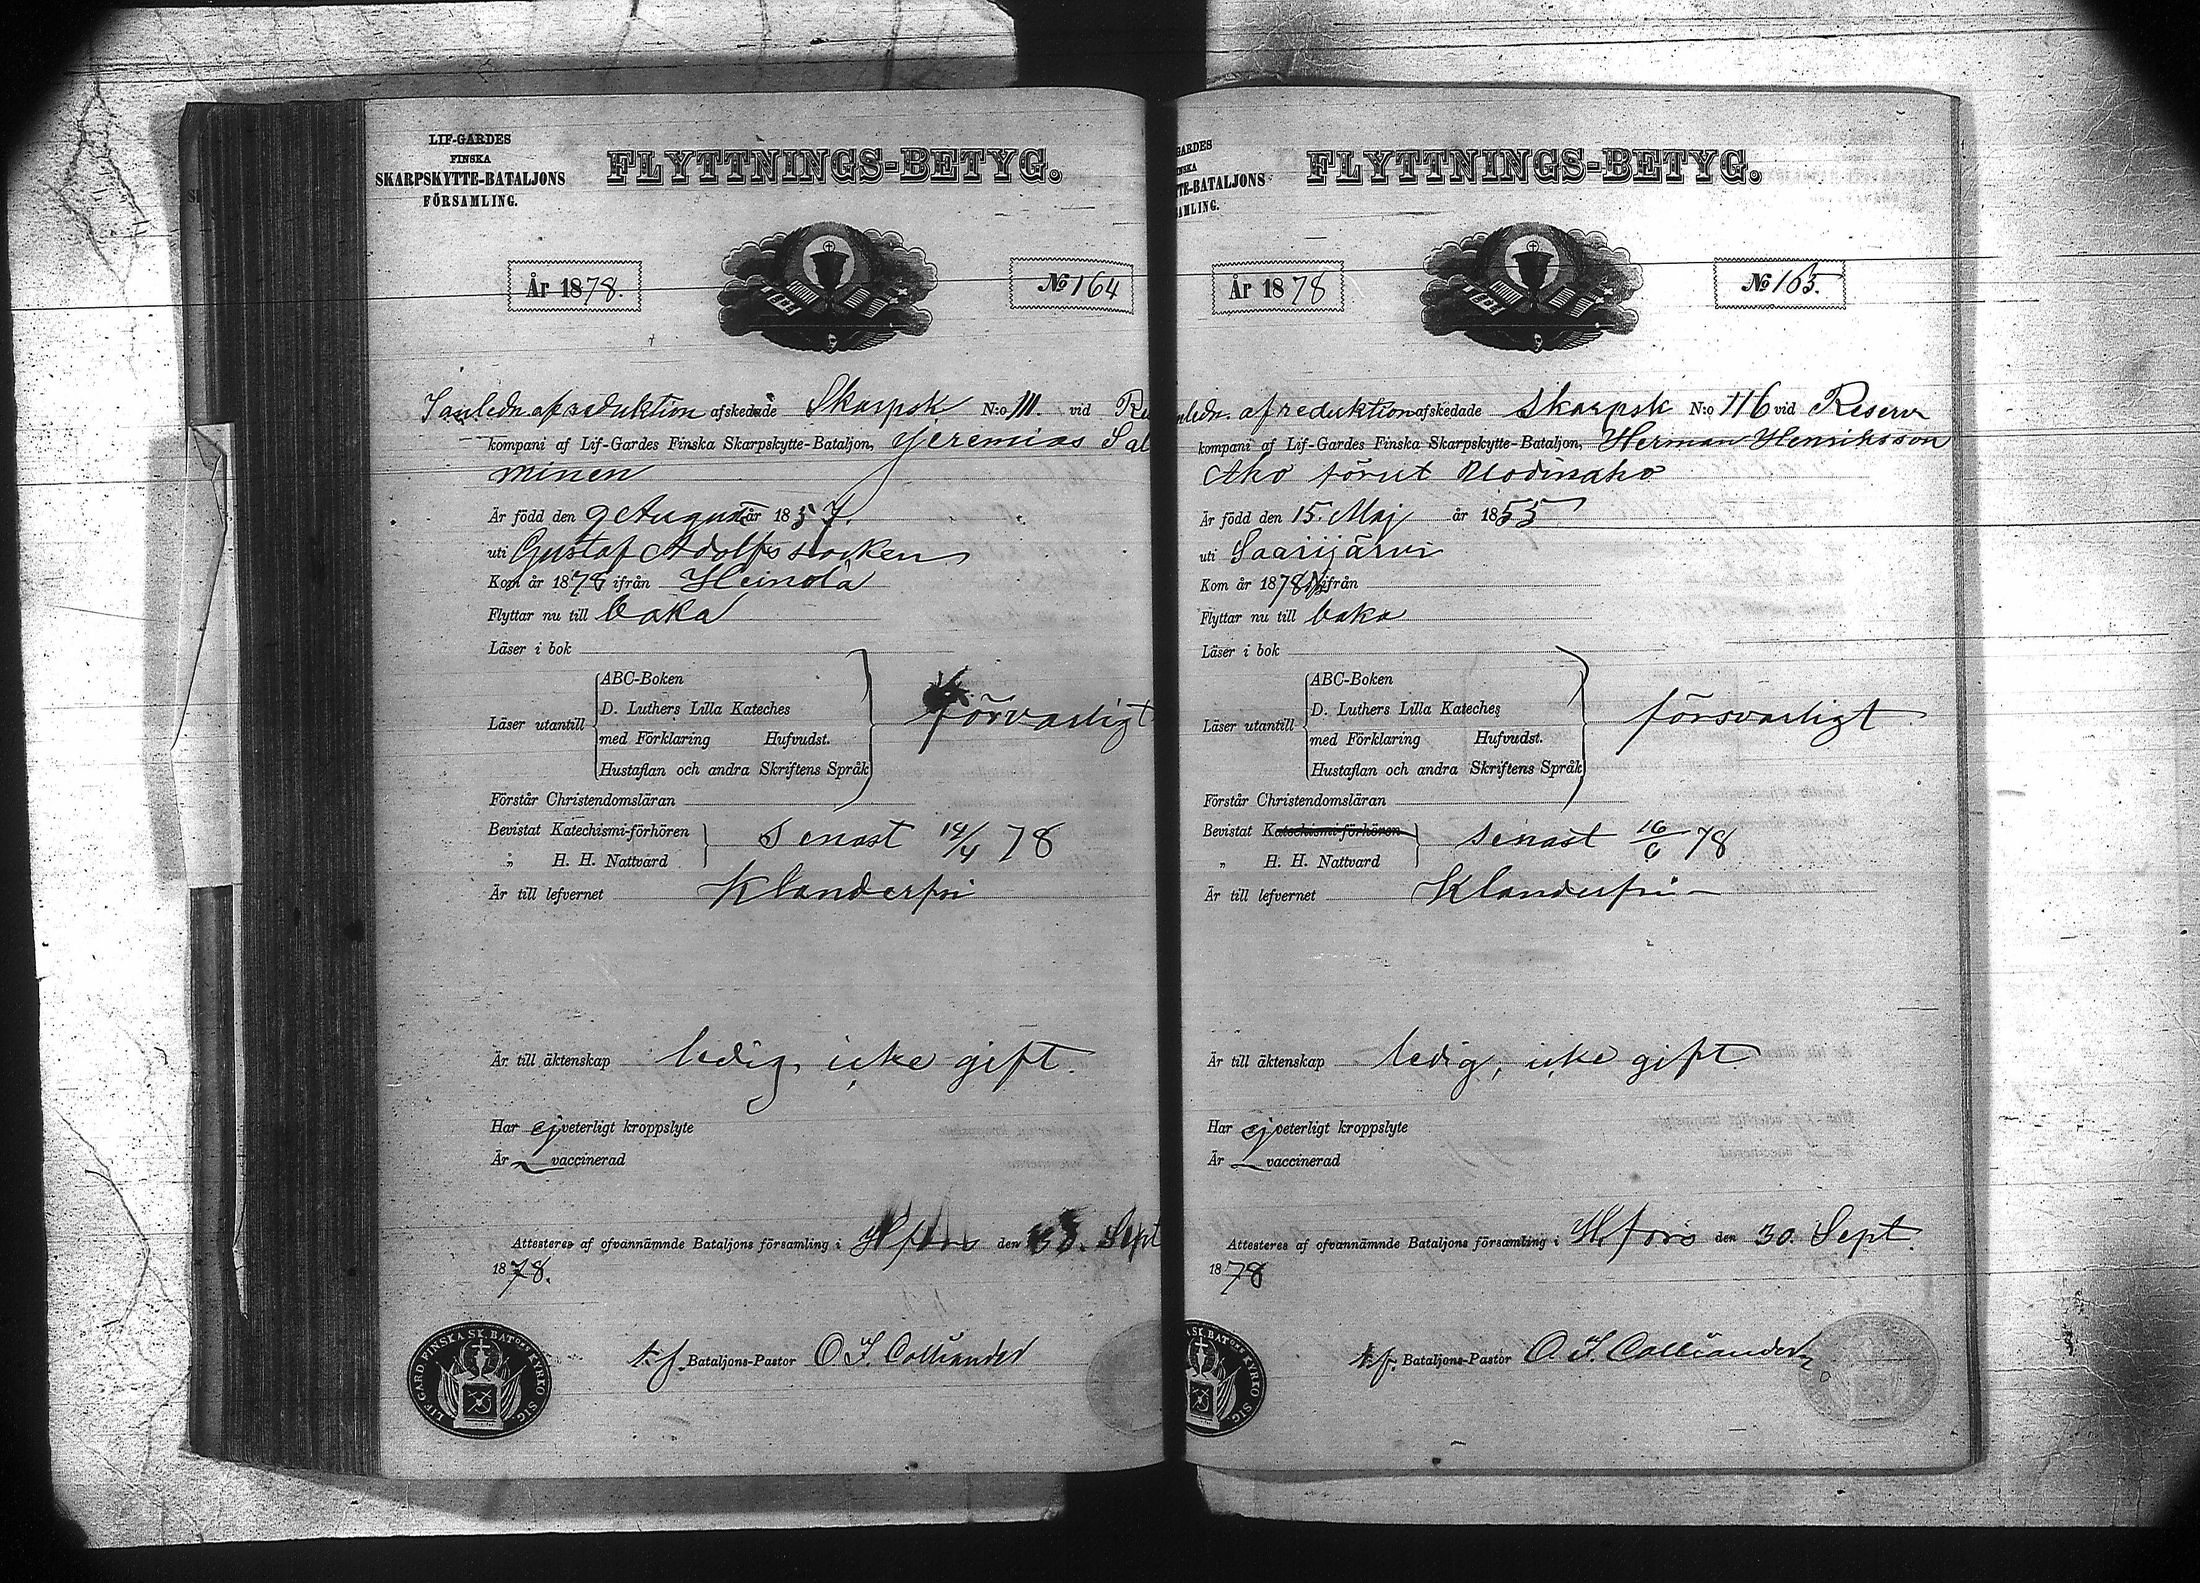 LIF-GARDES
FINSKA
SKARPSKYTTE-BATALJONS
FÖRSAMLING.
FLYTTNINGS-BETYG.
År 1878.
No 164
afskedade Skarpsk N:o 111. vid Re
kompani af Lif-Gardes Finska Skarpskytte-Bataljon, Jeremias Sal
minen
Är född den 9 August år 1857.
uti Gustaf Adolfs socken
Kom år 1878 ifrån Heinola
Flyttar nu till baka
Läser i bok
ABC-Boken
D. Luthers Lilla Kateches
Läser utantill
med Förklaring Hufvudst.
Hustaflan och andra Skriftens Språk
försvarligt
Förstår Christendomsläran
Bevistat Katechismi-förhören
„ H. H. Nattvard
senast 14/4 78
Är till lefvernet Klanderfri
Är till äktenskap ledig, icke gift.
Har ej veterligt kroppslyte
Är vaccinerad
Attesteres af ofvannämnde Bataljons församling i Hfors den 30. Sept
1878.
t.f. Bataljons-Pastor O. I. Colliander
LIF-GARD. FINSKA SK. BAT:ONS KYRKO SIG.
GARDES
NSKA
TE-BATALJONS
AMLING.
FLYTTNINGS-BETYG.
År 1878
No 165.
nledn. af reduktion afskedade Skarpsk N:o 116 vid Reserv
kompani af Lif-Gardes Finska Skarpskytte-Bataljon, Herman Henriksson
Aho förut
Är född den 15. Maj år 1855
uti Saarijärvi
Kom år 1878 ifrån
Flyttar nu till baka
Läser i bok
ABC-Boken
D. Luthers Lilla Kateches
Läser utantill
med Förklaring Hufvudst.
Hustaflan och andra Skriftens Språk
försvarligt
Förstår Christendomsläran
Bevistat Katechismi-förhören
„ H. H. Nattvard
senast 16/6 78
Är till lefvernet Klanderfri
Är till äktenskap ledig, icke gift.
Har ej veterligt kroppslyte
Är vaccinerad
Attesteres af ofvannämnde Bataljons församling i H.fors den 30. Sept.
1878
t.f. Bataljons-Pastor O. I. Colliander